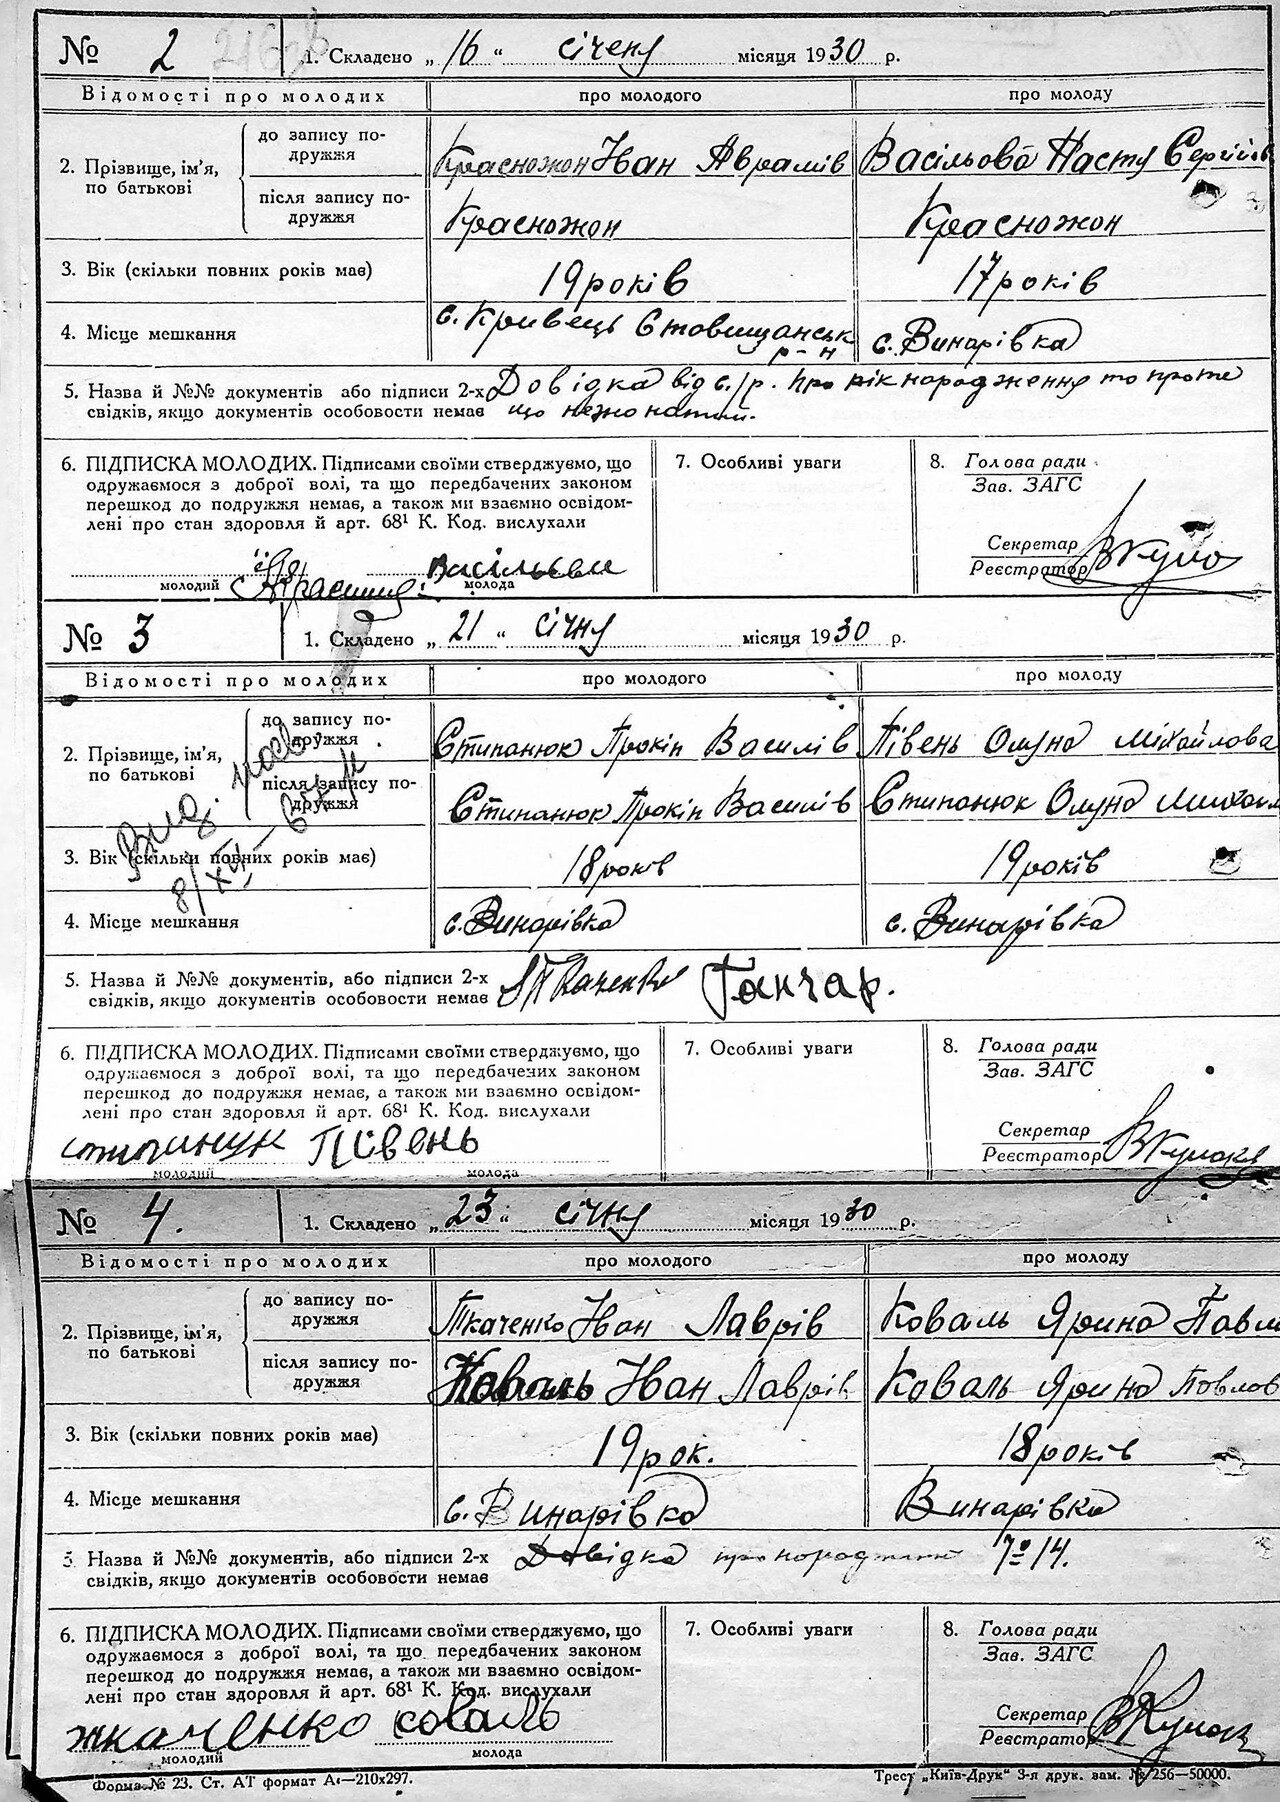 № 2 1. Складено „ 16 " січеня місяця 1930 р.
Відомості про молодих про молодого про молоду
2. Прізвище, ім'я, по батькові
до запису подружжя Красножон Іван Аврамів Васільова Настя Сергіів
після запису подружжя Красножон Красножон
3. Вік (скільки повних років має) 19 років 17 років
4. Місце мешкання с. Кривець Ставищанськ р-н с. Винарівка
5. Назва й №№ документів або підписи 2-х Довідка від с/р. про рік народження то проте
свідків, якщо документів особовости немає що нежонатий.
6. ПІДПИСКА МОЛОДИХ. Підписами своїми стверджуємо, що
одружаємося з доброї волі, та що передбачених законом
перешкод до подружжя немає, а також ми взаємно освідом-
лені про стан здоровля й арт. 68¹ К. Код. вислухали
молодий молода
7. Особливі уваги
8. Голова ради
Зав. ЗАГС
Секретар
Реєстратор
№ 3 1. Складено „ 21 " січня місяця 1930 р.
Відомості про молодих про молодого про молоду
2. Прізвище, ім'я, по батькові
до запису подружжя Стипанюк Прокіп Василів Півень Олуна Міхайлова
після запису подружжя Стипанюк Прокіп Василів Стипанюк Олуна
3. Вік (скільки повних років має) 18 років 19 років
4. Місце мешкання с. Винарівка с. Винарівка
5. Назва й №№ документів, або підписи 2-х Ткаченко Ганчар.
свідків, якщо документів особовости немає
6. ПІДПИСКА МОЛОДИХ. Підписами своїми стверджуємо, що
одружаємося з доброї волі, та що передбачених законом
перешкод до подружжя немає, а також ми взаємно освідом-
лені про стан здоровля й арт. 68¹ К. Код. вислухали
стипинук Півень
молодий молода
7. Особливі уваги
8. Голова ради
Зав. ЗАГС
Секретар
Реєстратор
№ 4. 1. Складено „ 23 " січня місяця 1930 р.
Відомості про молодих про молодого про молоду
2. Прізвище, ім'я, по батькові
до запису подружжя Ткаченко Іван Лаврів Коваль Ярина Павл
після запису подружжя Коваль Іван Лаврів Коваль Ярина Повлов
3. Вік (скільки повних років має) 19 рок. 18 років
4. Місце мешкання с. Винарівка Винарівка
5. Назва й №№ документів, або підписи 2-х Довідка про 7 о 14.
свідків, якщо документів особовости немає
6. ПІДПИСКА МОЛОДИХ. Підписами своїми стверджуємо, що
одружаємося з доброї волі, та що передбачених законом
перешкод до подружжя немає, а також ми взаємно освідом-
лені про стан здоровля й арт. 68¹ К. Код. вислухали
ткаченко коваль
молодий молода
7. Особливі уваги
8. Голова ради
Зав. ЗАГС
Секретар
Реєстратор
Форма № 23. Ст. АТ формат А₄—210х297. Трест „Київ-Друк" 3-я друк. зам. № 256—50000.